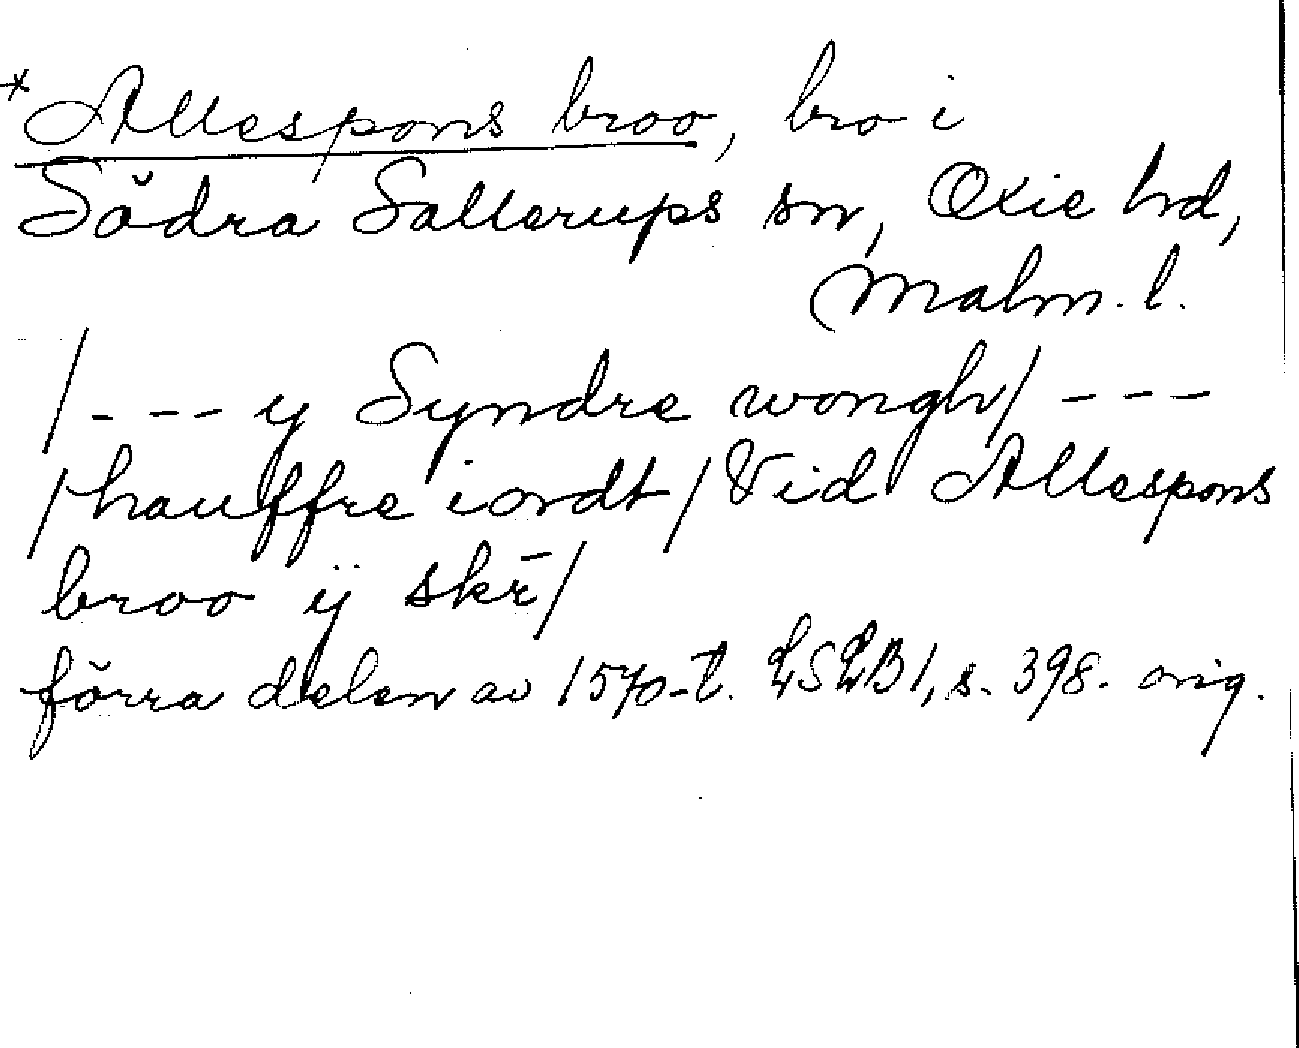 *Allespons broo, bro i
Södra Sallerups sn, Oxie hd,
Malm. l.
/- -- y Syndre wongh/ ---
/hauffre iordt/ Vid Allespons
broo ÿ skr̄/
förra delen av 1570-t. LSLB 1, s. 398. orig.